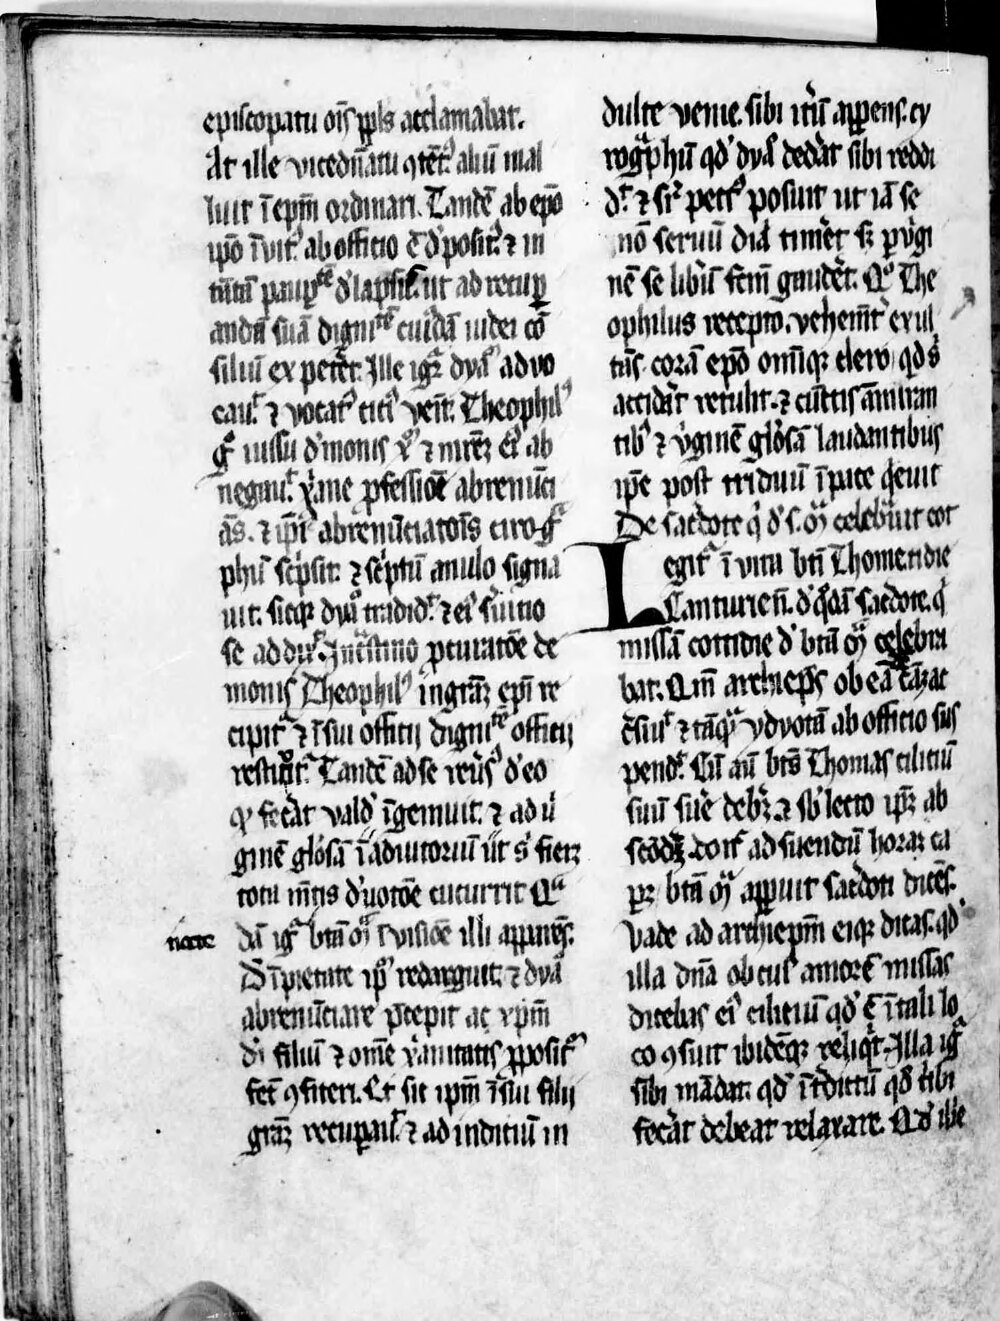 episcopatu oīs ppl̄s acclamabat.
At ille vicedn̄atu ꝯtēt᷒ aliū mal
luit ī epm̄ ordinari. Tandē ab epō
ip̄o īuit᷒ ab officio ē d'posit᷒ ⁊ in
tātā paup̄tatē d'lapsus. ut ad recup
andā suā dignitatē cuiusdā iudei cō
siliū expetēt. Ille igr̄ dyabolū advo
cauit ⁊ vocat᷒ citi᷒ venit. Theophil᷒
gͦ iussu d'monis xp̄m ⁊ mrēm ei᷒ ab
negauit. xp̄iane ꝓfessiōē abrenūci
ās. ⁊ ip̄i᷒ abrenūciatōis ciro gͣ
phū sc̄psit. ⁊ sc̄ptū anulo signa
uit. sicqꝫ dyabolo tradidit ⁊ ei᷒ s̄uitio
se addixit. In crastino ꝓcuratōe de
monis Theophil᷒ in grām epī re
cipitur ⁊ ī sui officij dignitatē officij
restituit̄. Tandē ad se reūs᷒ d' eo
qd fecāt vald' īgemuit. ⁊ ad ū
ginē gl̄osā ī adiutoriū ut s̄ fieret
tota mētis d'uotōe cucurrit Qͣ
note dā igͥ btā mͣ ī visiōe illi apparēs.
D' īpietate ip̄m redarguit. ⁊ dyabolo
abrenūciare p̄cepit ac xp̄m
dī filiū ⁊ om̄e xp̄ianitatis ꝓpositū
fec̄ ꝯfiteri. Et sic ip̄m ī sui filij
grām recuperauit ⁊ ad indiciū in
dulte venie. sibi itēū apparens. cy
rogͣphū qd' dyabolo dedāt sibi reddi
dit. ⁊ sr̄ pect᷒ posuit ut iā se
nō seruū diaboli timēt sꝫ p virgi
nē se libūm fcm̄ gaudēt. Quo The
ophilus recepto. vehemēt̄ exul
tās. corā epō omniqꝫ clero qd s̄
accidāt retulit. ⁊ cūctis āmiran
tib᷒ ⁊ v̄ginē gl̄osā laudantibus
ip̄e post triduū ī pace q̄euit
De sac̄dote qͥ d' s. mͣ celebrauit cot
Legit᷒ ī vita btī Thome. tidie
Canturien̄. d' qͦdā sac̄dote. qͥ
missā cottidie d' btā mͣ celebra
bat. Quē archiep̄s ob eā cām
ēsuit ⁊ tāqͣ ydyotā ab officio sus
pendit. Cū aū bt̄s Thomas ciliciū
suū suē debēt. ⁊ sb' lecto ip̄m ab
scōdisset. donec ad suendū horā ca
p̄et. btā mͣ apparuit sac̄doti dicēs.
Vade ad archiepm̄ eiqꝫ dicas. qd'
illa dn̄a ob cui᷒ amorē missas
dicebas ei᷒ ciliciū qd' ē ī tali lo
co ꝯsuit ibidēqꝫ reliqͥt. Illa igͥ
sibi mādat. qd' īt̄dictū qd' tibi
fecāt debeat relaxare. Qd' ille